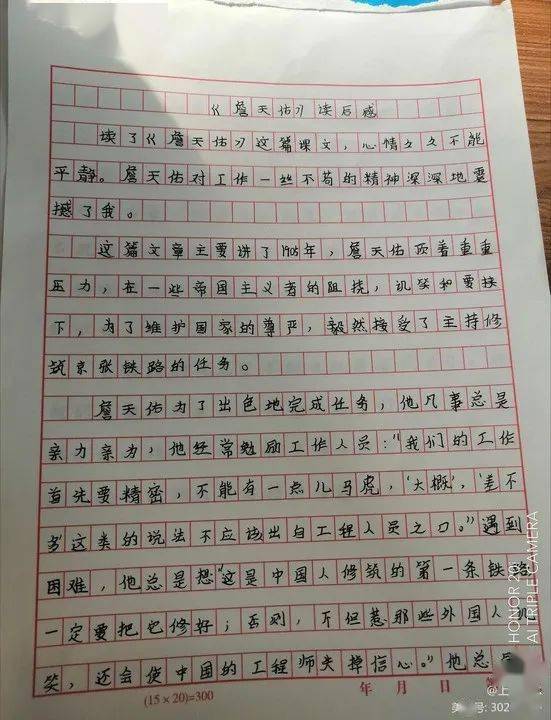 《詹天佑》读后感
读了《詹天佑》这篇课文，心情久久不能
平静。詹天佑对工作一丝不苟的精神深深地震
撼了我。
这篇文章主要讲了1905年，詹天佑顶着重重
压力，在一些帝国主义者的阻挠，讥笑和要挟
下，为了维护国家的尊严，毅然接受了主持修
筑京张铁路的任务。
詹天佑为了出色地完成任务，他凡事总是
亲力亲为，他经常勉励工作人员："我们的工作
首先要精密，不能有一点儿马虎，'大概'，'差不
多'这类的说法不应该出自工程人员之口。"遇到
困难，他总是想"这是中国人修筑的第一条铁路
一定要把它修好；否则，不但惹那些外国人
笑，还会使中国的工程师失掉信心。"他总
(15×20)=300
年 月 日
HONOR 20i
AI TRIPLE CAMERA
@上
号: 302